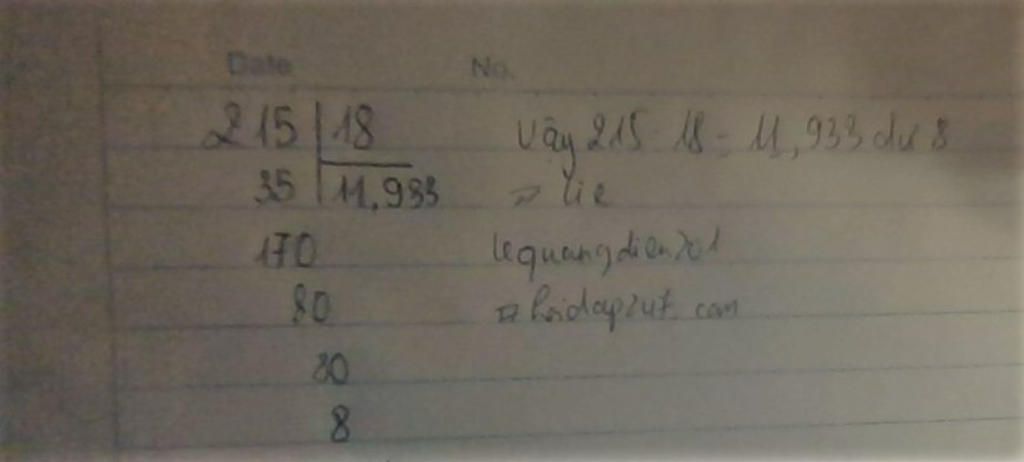 Date No.
215 18 Vậy 215 : 18 = 11,933 dư 8
35 11,933
170 lequangdien201
80
80
8